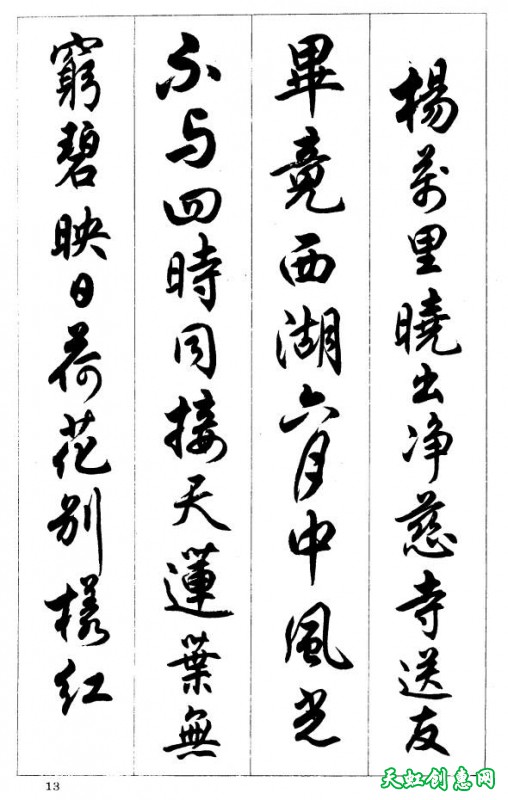 楊萬里曉出净慈寺送友
畢竟西湖六月中風光
不与四時同接天蓮葉無
窮碧映日荷花别樣红
13
天虹创意网